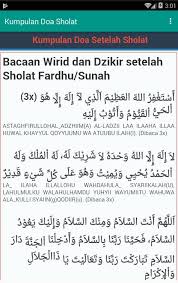 3:01
Kumpulan Doa Sholat
Kumpulan Doa Setelah Sholat
Bacaan Wirid dan Dzikir setelah
Sholat Fardhu/Sunah
أَسْتَغْفِرُ اللهَ الْعَظِيْمَ الَّذِيْ لَا إِلٰهَ إِلَّا هُوَ (3x)
الْحَيُّ الْقَيُّوْمُ وَأَتُوْبُ إِلَيْهِ
ASTAGHFIRULLOHAL_ADZHIIM(A) AL-LADZII LAA ILAAHA ILLAA
HUWAL KHAYYUL QOYYUUMU WA ATUUBU ILAIH(I). (Dibaca 3x)
لَا إِلٰهَ إِلَّا اللهُ وَحْدَهُ لَا شَرِيْكَ لَهُ، لَهُ الْمُلْكُ وَلَهُ
الْحَمْدُ يُحْيِيْ وَيُمِيْتُ وَهُوَ عَلَى كُلِّ شَيْءٍ قَدِيْرٌ
LA_ILAHA ILLALLOHU WAHDAHULA_ SYARIIKALAH(U),
LAHULMULKU WALAHULHAMDU YUHYII WAYUMIITU WAHUWA
'ALA_KULLI SYAIIN(q)QODIIR(u). (Dibaca 3x)
اَللّٰهُمَّ أَنْتَ السَّلَامُ وَمِنْكَ السَّلَامُ وَإِلَيْكَ يَعُوْدُ
السَّلَامُ فَحَيِّنَا رَبَّنَا بِالسَّلَامِ وَأَدْخِلْنَا الْجَنَّةَ دَارَ
السَّلَامِ تَبَارَكْتَ رَبَّنَا وَتَعَالَيْتَ يَا ذَا الْجَلَالِ
وَالْإِكْرَامِ